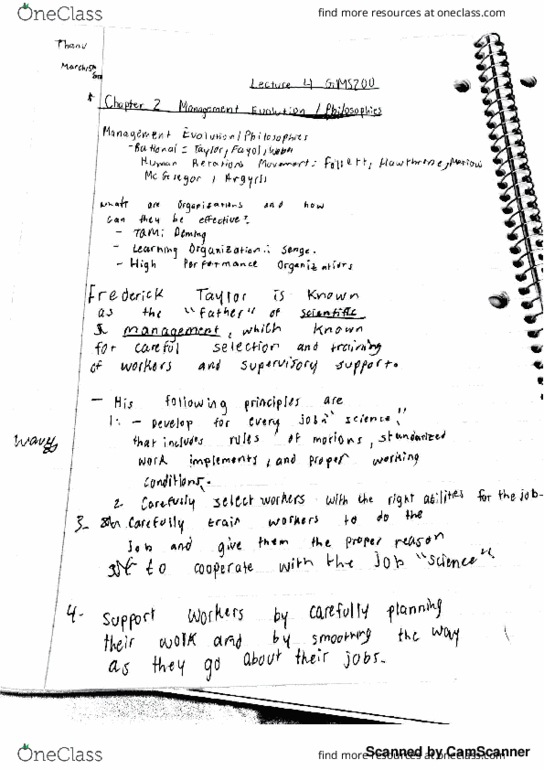 OneClass
find more resources at oneclass.com
Thanu
March
Lecture 4 GMS200
Chapter 2 Management Evolution / Philosophies
Management Evolution/Philosophies
- Rational = Taylor, Fayol, Weber
Human Relations Movement: Follett, Hawthorne,
McGregor, Argyris
whats are Organizations and how
can they be effective?
- TQM: Deming
- Learning Organization: Senge.
- High Performance Organizations
Frederick Taylor is Known
as the "father" of scientific
& management, which known
for careful selection and training
of workers and supervisory support.
- His following principles are
1: - Develop for every job a "science"
that includes rules of motions, standarized
work implements, and proper working
conditions.
2- Carefully select workers with the right abilities for the job-
3- Carefully train workers to do the
Job and give them the proper reason
to cooperate with the Job "science".
4- Support workers by carefully planning
their work and by smoothing the way
as they go about their jobs.
OneClass
find more resources at oneclass.com
Scanned by CamScanner